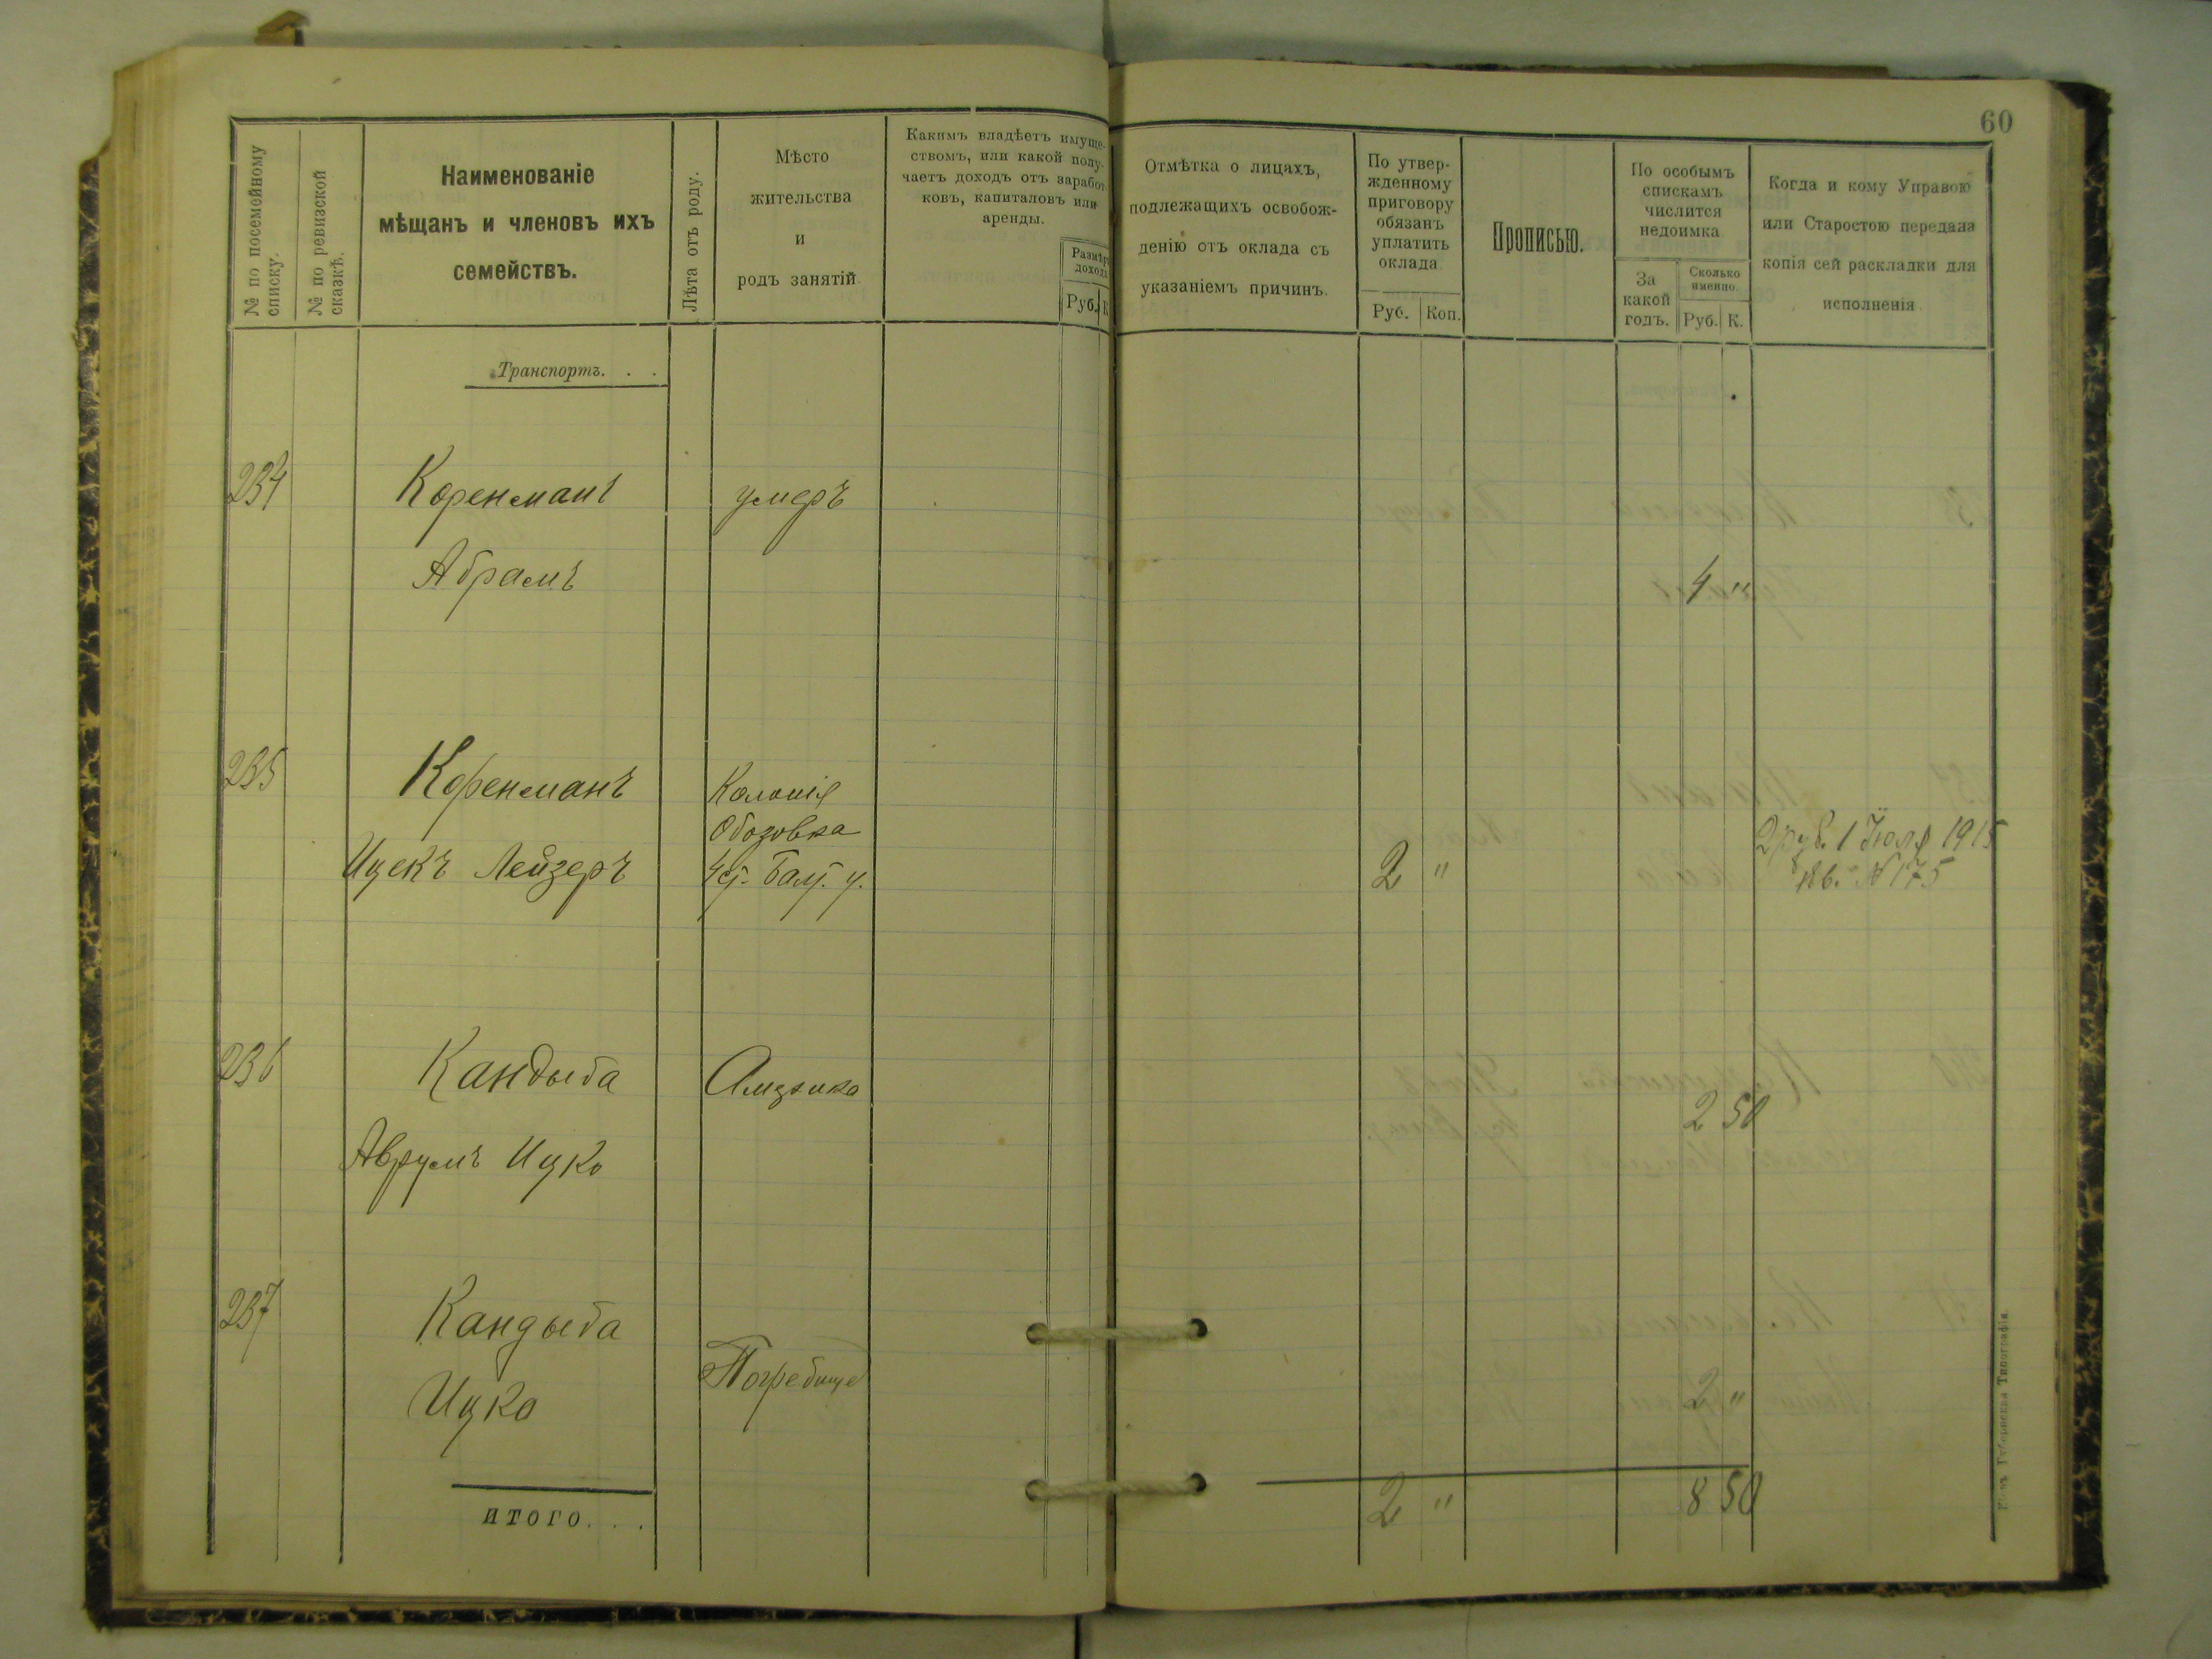 60
№ по посемейному
списку.
№ по ревизской
сказкѣ.
Наименованіе
мѣщанъ и членовъ ихъ
семействъ.
Лѣта отъ роду.
Мѣсто
жительства
и
родъ занятій.
Какимъ владѣетъ имуще-
ствомъ, или какой полу-
чаетъ доходъ отъ заработ-
ковъ, капиталовъ или
аренды.
Размѣръ
дохода
Руб.
К
Отмѣтка о лицахъ,
подлежащихъ освобож-
денію отъ оклада съ
указаніемъ причинъ.
По утвер-
жденному
приговору
обязанъ
уплатить
оклада
Руб.
Коп.
Прописью.
По особымъ
спискамъ
числится
недоимка
За
какой
годъ.
Сколько
именно.
Руб.
К.
Когда и кому Управою
или Старостою передана
копія сей раскладки для
исполненія
Транспортъ. . .
234
Коренманъ
умеръ
Абрамъ
4 "
235
Коренманъ
Колонія
Обозовка
Ицекъ Лейзеръ
Балт. у.
2 "
2 руб. 1 Іюля 1915
кв. № 175
236
Кандыба
Америка
2 50
Аврумъ Ицко
237
Кандыба
Погребище
Ицко
2 "
итого. . .
2 "
8 50
Губернская Типографія.